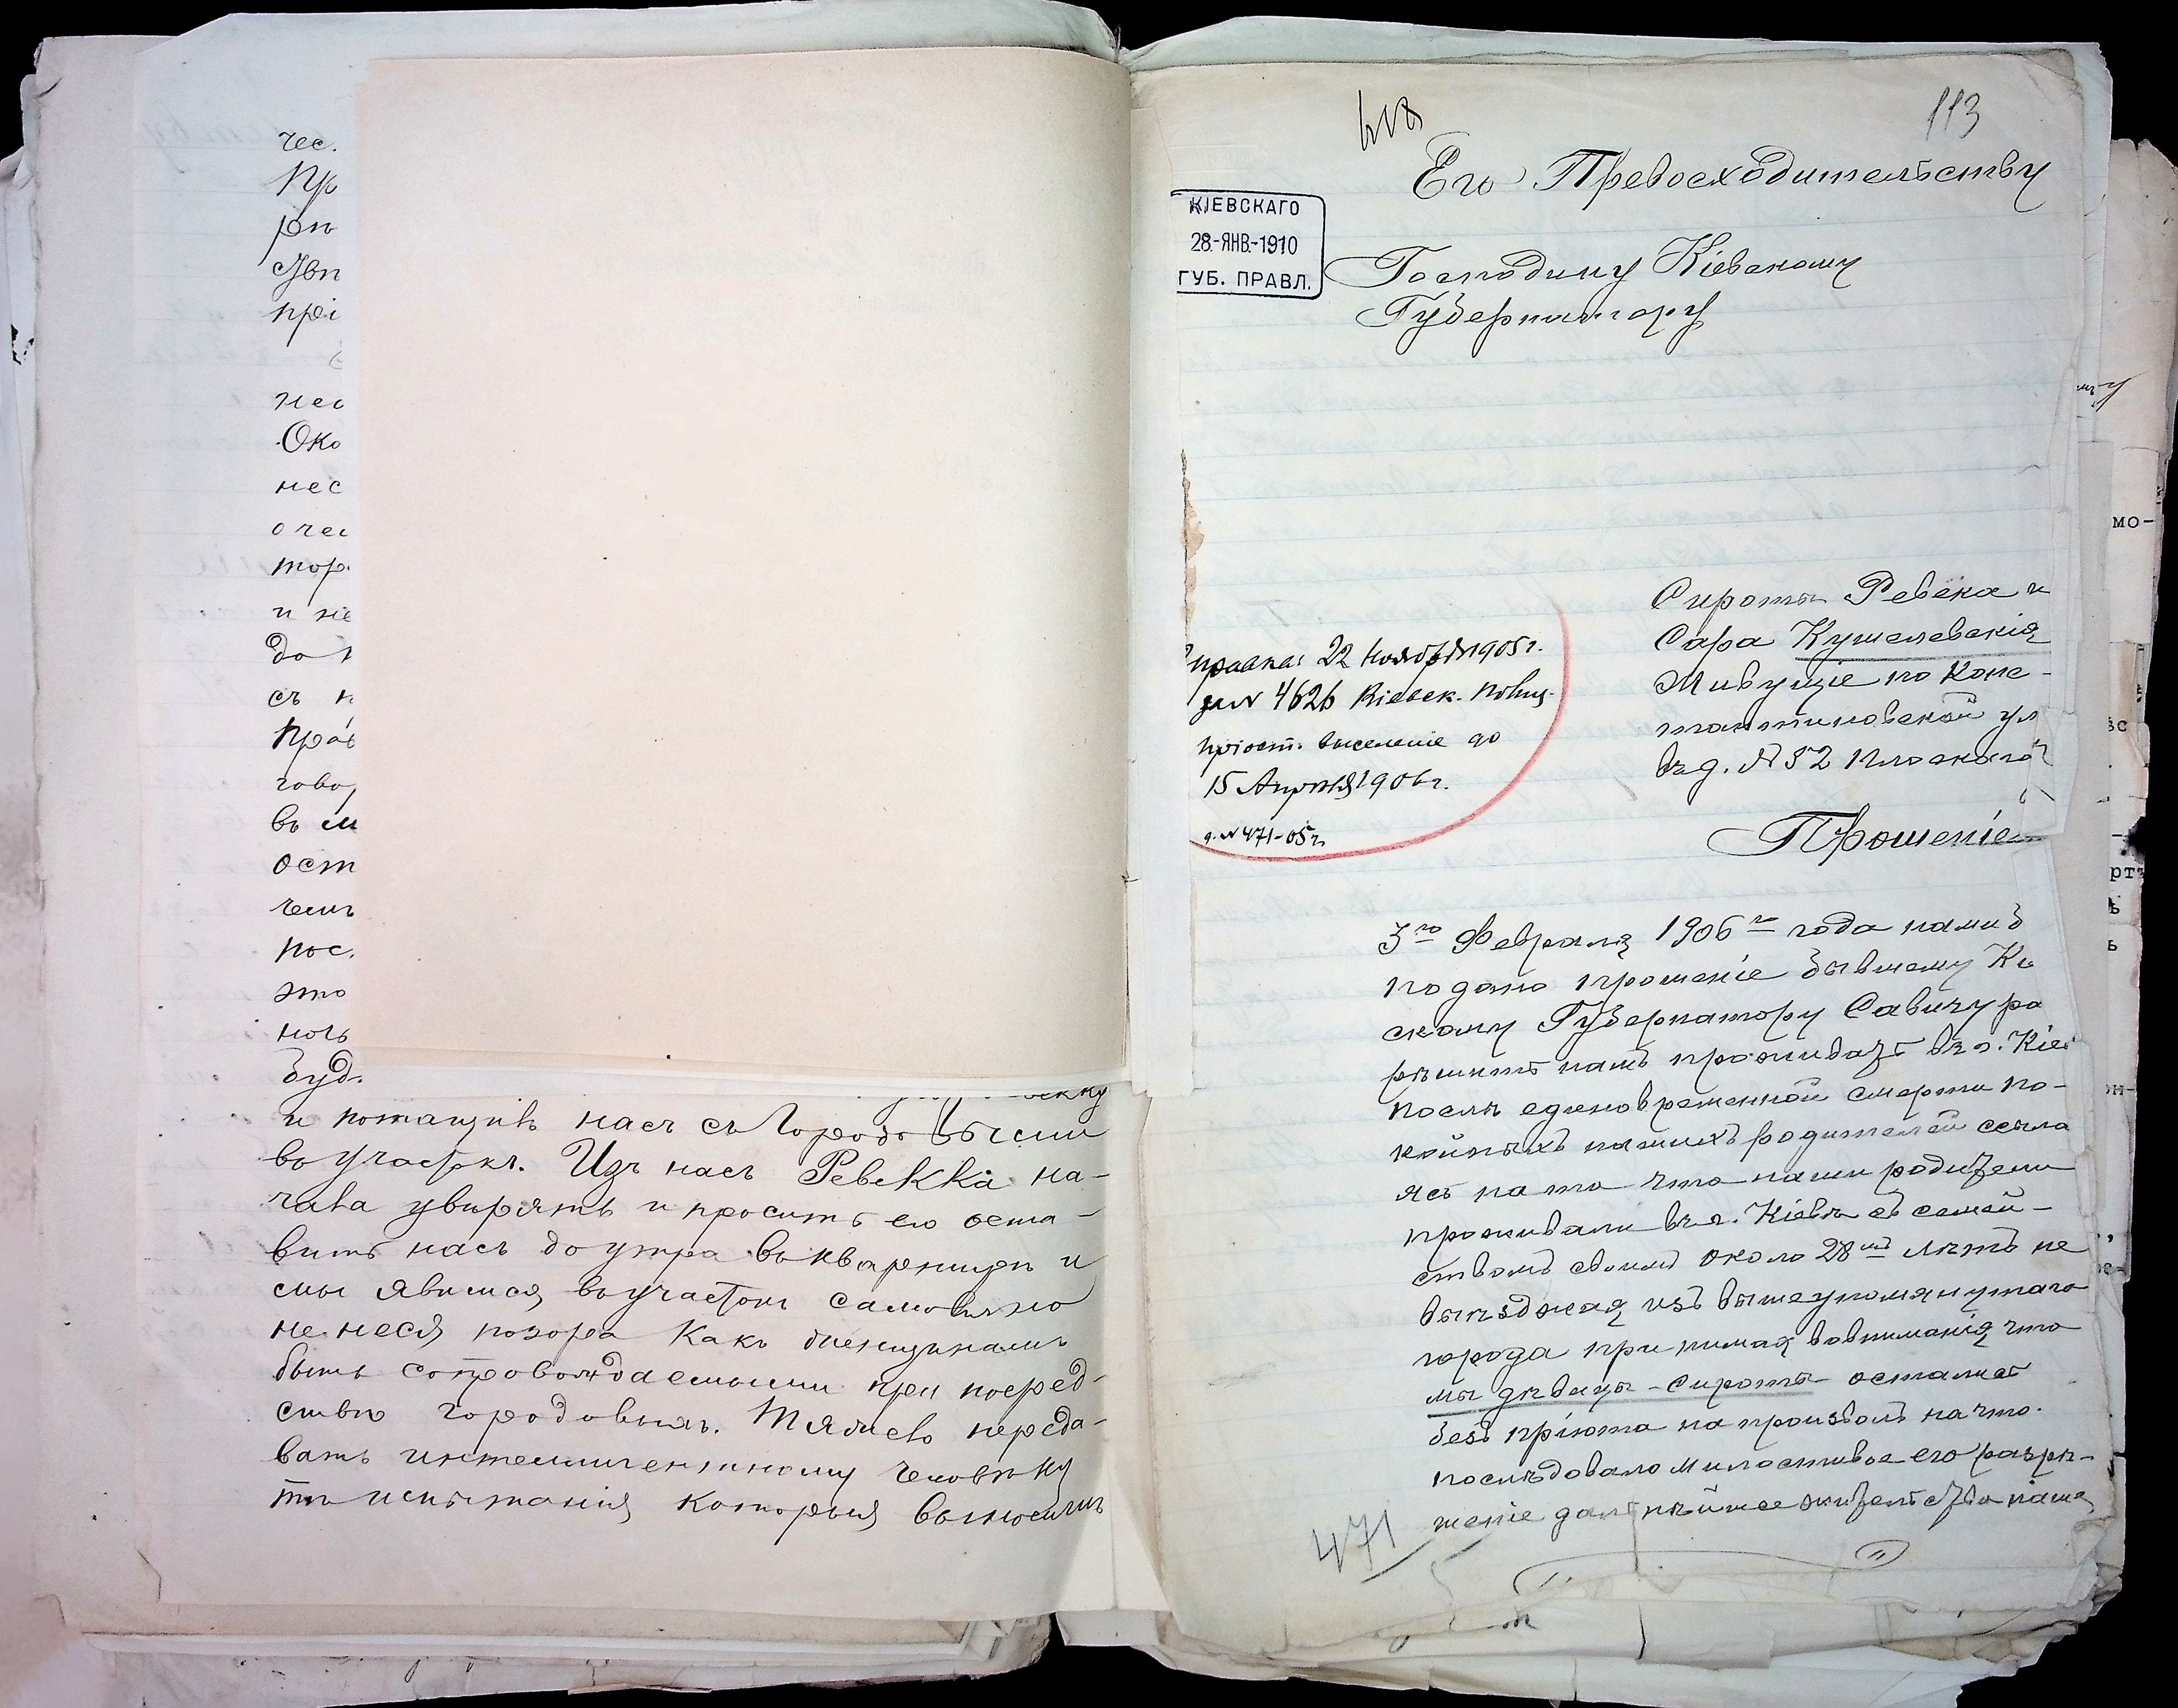 чес.
Пр
рѣ
Увѣ
прі
нес
Око
нес
очес
тор
и не
до
съ н
Прав
гово
въ м
ост
чемъ
пос.
это
ночь
буд.
и потащивъ насъ съ Городовысми
въ участкъ. Изъ насъ Ревекка на-
чала увирять и просить его оста-
вить насъ до утра въ квартирѣ и
мы явимся въ участокъ самолично
не неся позора какъ женщинамъ
быть сопровождаемыми при посред-
ствѣ городовыхъ. Тяжело переда-
вать интеллигентному человѣку
тѣ испытанія которыя выносимъ
113
Его Превосходительству
КІЕВСКАГО
28.-ЯНВ.-1910
ГУБ. ПРАВЛ.
Господину Кіевскому
Губернатору
Сироты Ревека и
Сара Кушелевскія
Живущіе по Конс-
тантиновской ул
въ д. № 32 Плоскаго
правка: 22 Ноября 1905 г.
за № 4626 Кіевск. Полиц.
пріост. выселеніе до
15 Апрѣля 1906 г.
д. № 471-05 г.
Прошеніе
3го Февраля 1906го года нами
подано прошеніе бывшему Кі
скому Губернатору Савичу ра
рѣшить намъ проживать въ г. Кіев
послѣ единовременной смерти по-
койныхъ нашихъ родителей ссыла
ясь на то что наши родители
проживали въ г. Кіевѣ съ семей-
ствомъ своимъ около 28мъ лѣтъ не
выѣзжая изъ вышеупомянутаго
города принимая вовниманія что
мы дѣвицы-сироты остались
безъ пріюта на произволъ на что
послѣдовало милостивое его разрѣ-
шеніе дальнѣйшее жительство наше
471